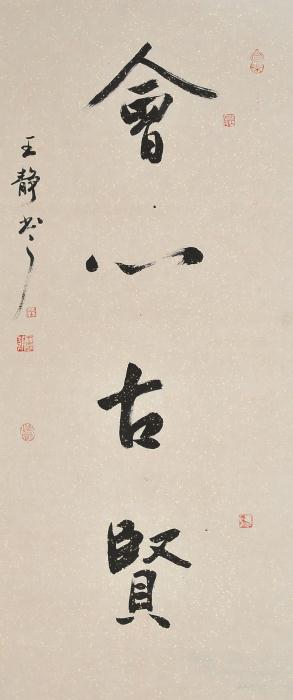 會心古賢
王靜书